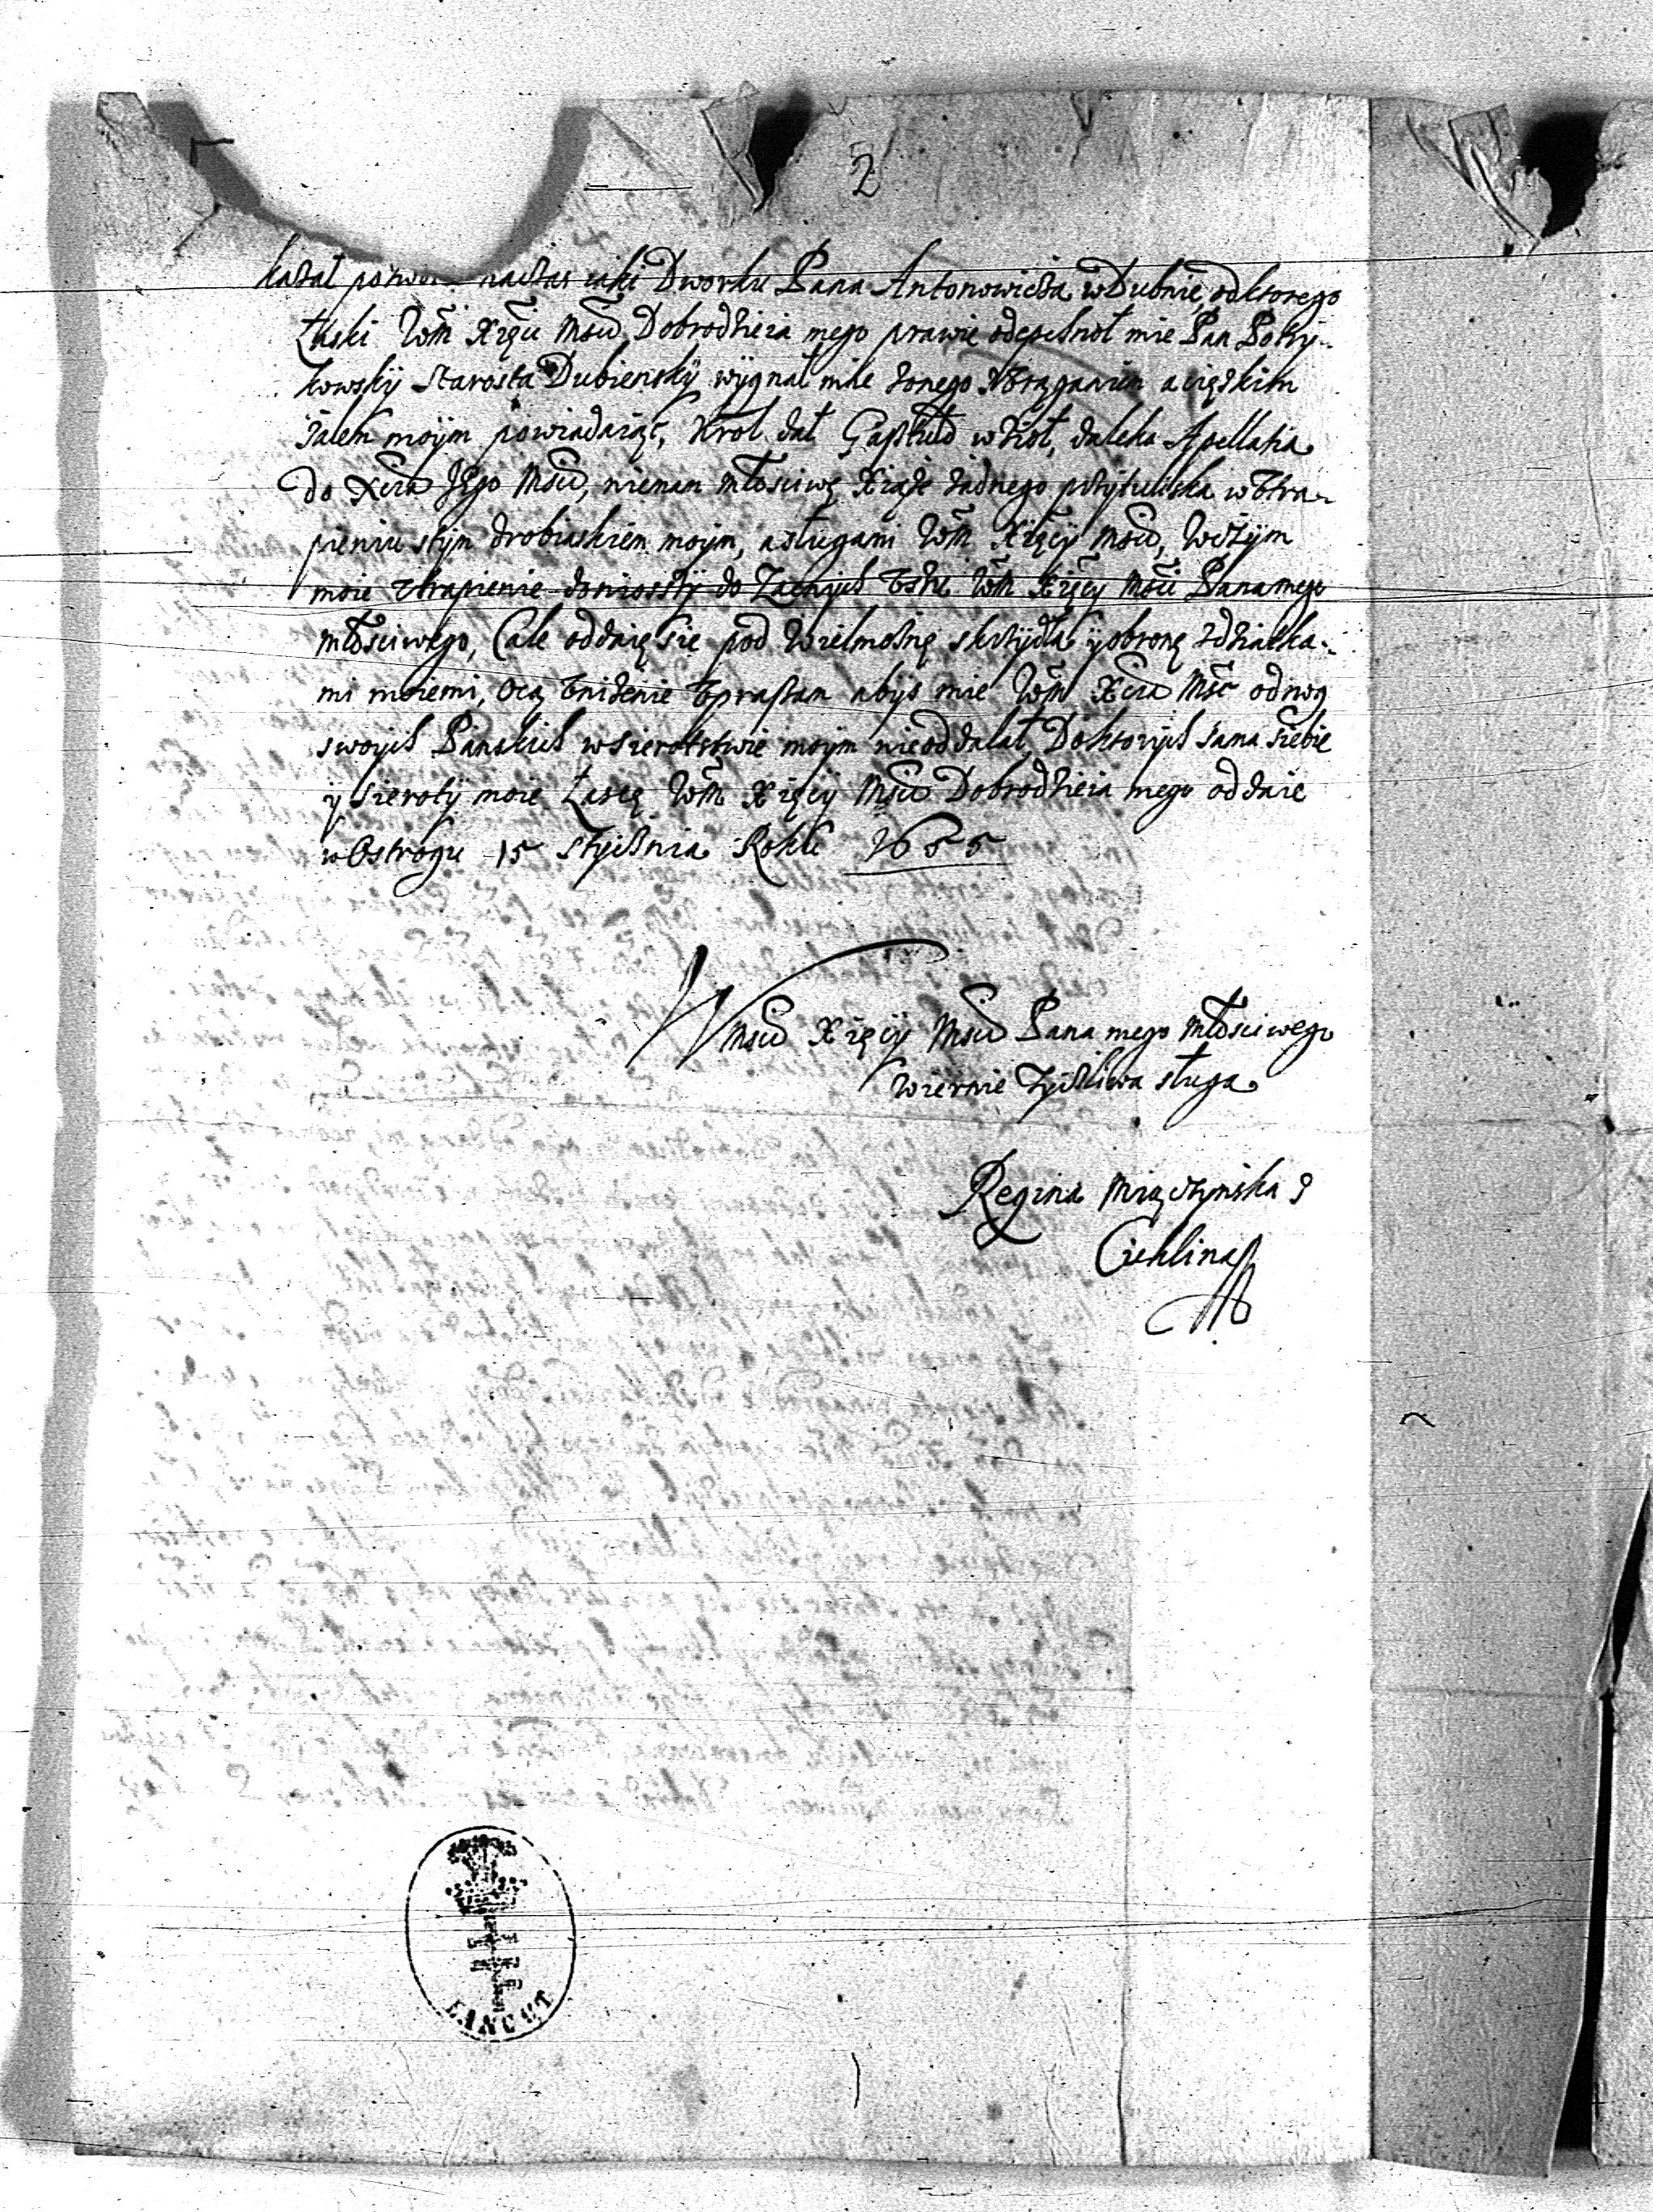 2
kazał pozwo naczas iaki Dworku Pana Antonowicza w Dubnie, od ktorego
Łaski Wm̃ Xięcii Mści Dobrodzieia mego prawie odepchnoł mie Pan
kowskÿ Starosta Dubienskÿ wÿgnał mie zonego Urąganim a cięzkim
zalem moÿm powiadaiąc, Krol dał daleka Apellatia
do Xcia Jego Mści, niemam Młosciwe Xiąże żadnego przytuliska w Utra-
pieniu stÿm drobiaskiem moÿm, a sługami Wm̃ Xięcÿ Mści, wczÿm
moie Utrapienie doniosszÿ do Zacnÿch Uszu Wm̃ Xięcÿ Mści Pana mego
Młosciwego, Cale oddaię sie pod Wielmożnę skrzÿdła ÿ obronę zdziatka-
mi moiemi, Ocz Unizenie Upraszam abÿs mie Wm̃ Xcia Mść od nog
swoÿch Panskich w sierotstwie moÿm nieoddalał, Doktorÿch sama siebie
ÿ sierotÿ moie Łascę Wm̃ Xięcÿ Mści Dobrodzieia mego oddaie
w Ostrogu 15 Stÿcznia Roku 1655
WMści Xięcÿ Mści Pana mego Młosciwego
Wiernie Zÿczliwa sługa
Regina Miączÿnska
Ciuklina
ŁAŃCUT